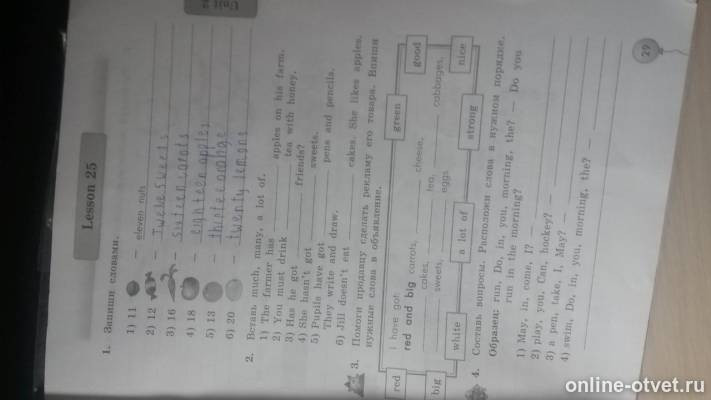 Unit 2
Lesson 25
1. Запиши словами.
1) 11 — eleven nuts
2) 12 — Twelve sweets
3) 16 — sixteen carrots
4) 18 — eighteen apples
5) 13 — thirteen orange
6) 20 — twenty lemons
2. Вставь much, many, a lot of.
1) The farmer has apples on his farm.
2) You must drink tea with honey.
3) Has he got friends?
4) She hasn't got sweets.
5) Pupils have got pens and pencils.
They write and draw.
6) Jill doesn't eat cakes. She likes apples.
3. Помоги продавцу сделать рекламу его товара. Впиши
нужные слова в объявление.
red green good
I have got
red and big carrots, cheese, cabbages,
cakes, tea,
sweets, eggs.
big white a lot of strong nice
4. Составь вопросы. Расположи слова в нужном порядке.
Образец: run, Do, in, you, morning, the? — Do you
run in the morning?
1) May, in, come, I? —
2) play, you, Can, hockey? —
3) a pen, take, I, May? —
4) swim, Do, in, you, morning, the?
29
online-otvet.ru